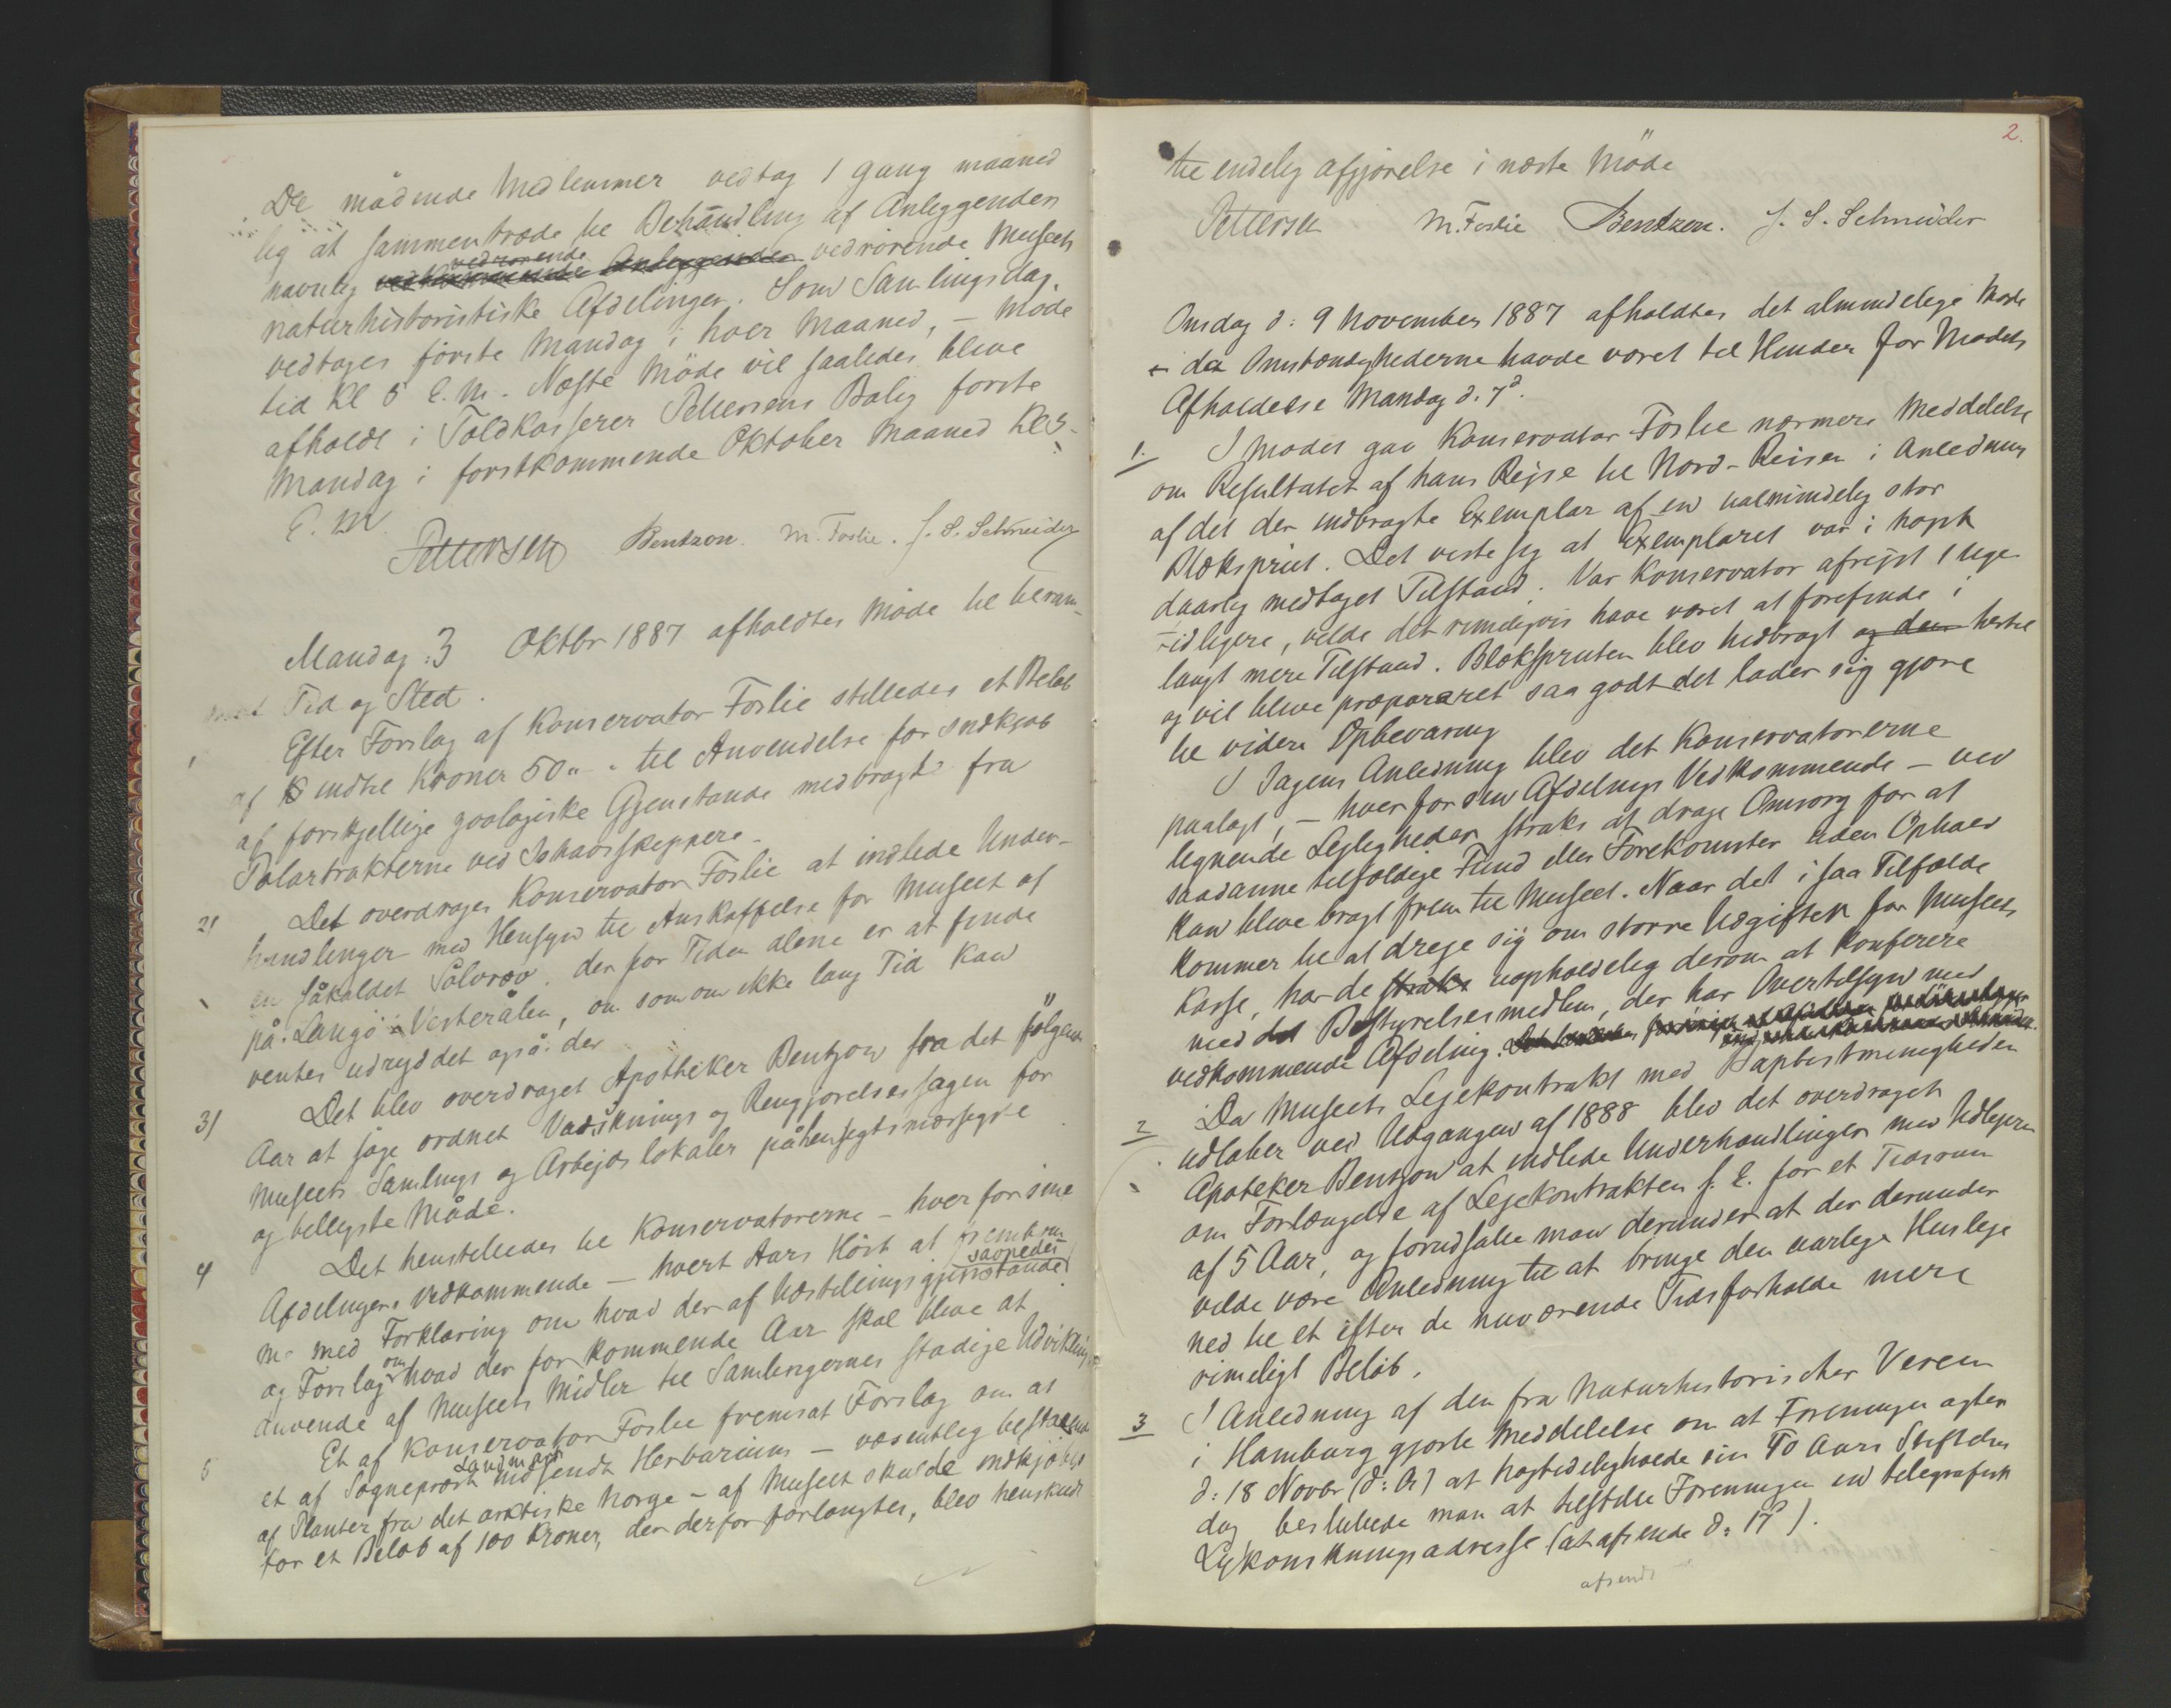 De mødende Medlemmer vedtog 1 gang maaned
lig at sammentræde til Behandling af Anliggender
navnlig vedrørende Anliggender vedrørende Museets
naturhistoristiske Afdelinger. Som Samlingsdag
vedtages første Mandag i hver Maaned, – Møde
tid Kl 5 E.M. Næste Møde vil saaledes blive
afholdt i Toldkasserer Pettersens Bolig første
Mandag i førstkommende Oktober Maaned Kl 5
E. M.
Pettersen Bentzon. M. Foslie. J. S. Schneider
Mandag : 3 Oktbr 1887 afholdtes Møde til beram
met Tid og Sted.
1 Efter Forslag af Konservator Foslie stilledes et Beløb
af indtil Kroner 50 „ - til Anvendelse for Indkjøb
af forskjellige zoologiske Gjenstande medbragt fra
Polartrakterne ved Ishavsskippere.
2) Det overdroges Konservator Foslie at indlede Under-
handlinger med Hensyn til Anskaffelse for Museet af
en såkaldet Sölvræv, der for Tiden alene er at finde
på Langö i Vesterålen, om som om ikke lang Tid kan
ventes udryddet også der
3) Det blev overdraget Apotheker Bentzon fra det følgende
Aar at søge ordnet Vadsknings og Rengjørelsessagen for
Museets Samlings og Arbejdslokaler på hensigtsmæssigste
og billigste Måde.
4 Det henstilledes til Konservatorerne – hver for sine
Afdelingers Vedkommende – hvert Aars Höst at fremkom
me med Forklaring om hvad der af Udstillingsgjenstande savnedes
og Forslag om hvad der for kommende Aar skal blive at
anvende af Museets Midler til Samlingernes stadige Udvikling
5 Et af Konservator Foslie fremsat Forslag om at
et af Sogneprest Landmark indsendt Herbarium – væsentlig bestaaende
af Planter fra det arktiske Norge – af Museet skulde indkjøbes
for et Beløb af 100 Kroner, der derfor forlangtes, blev henskudt
2.
til endelig afgjørelse i næste Møde
Pettersen M. Foslie Bentzon. J. S. Schneider
Onsdag d: 9 November 1887 afholdtes det almindelige Møde
i da Omstændighederne havde været til Hinder for Mødets
Afholdelse Mandag d. 7d.
1. I Mødet gav Konservator Foslie nærmere Meddelelse
om Resultatet af hans Rejse til Nord-Reisen i Anledning
af det der indbragte Exemplar af en ualmindelig stor
Blæksprut. Det viste sig at Exemplaret var i højst
daarlig medtaget Tilstand. Var Konservator afrejst 1 Uge
tidligere, vilde det rimeligvis have været at forefinde i
langt mere Tilstand. Blæksprutten blev hidbragt og den hertil
og vil blive præpareret saa godt det lader sig gjøre
til videre Opbevaring
I Sagens Anledning blev det Konservatorerne
paalagt, – hver for sin Afdelings Vedkommende – ved
lignende Lejligheder straks at drage Omsorg for at
saadanne tilfældige Fund eller Forekomster uden Ophold
kan blive bragt frem til Museet. Naar det i saa Tilfælde
kommer til at dreje sig om større Udgifter for Museets
Kasse, har de straks uopholdelig derom at konferere
med det Bestyrelsesmedlem, der har Overtilsyn med
vedkommende Afdeling.
2 Da Museets Lejekontrakt med Baptistmenigheden
udløber ved Udgangen af 1888 blev det overdraget
Apoteker Bentzon at indlede Underhandlinger med Udlejeren
om Forlængelse af Lejekontrakten f. E. for et Tidsrum
af 5 Aar, og forudsatte man derunder at der derunder
vilde være Anledning til at bringe den aarlige Husleje
ned til et efter de nuværende Tidsforholde mere
rimeligt Beløb.
3 I Anledning af den fra Naturhistorischer Verein
i Hamburg gjorte Meddelelse om at Foreningen agter
d: 18 Novbr (d: A) at højtideligholde sin 50 Aars Stiftelses
dag besluttede man at tilstille Foreningen en telegrafisk
Lykønskningsadresse (at afsende d: 17d).
afsendt